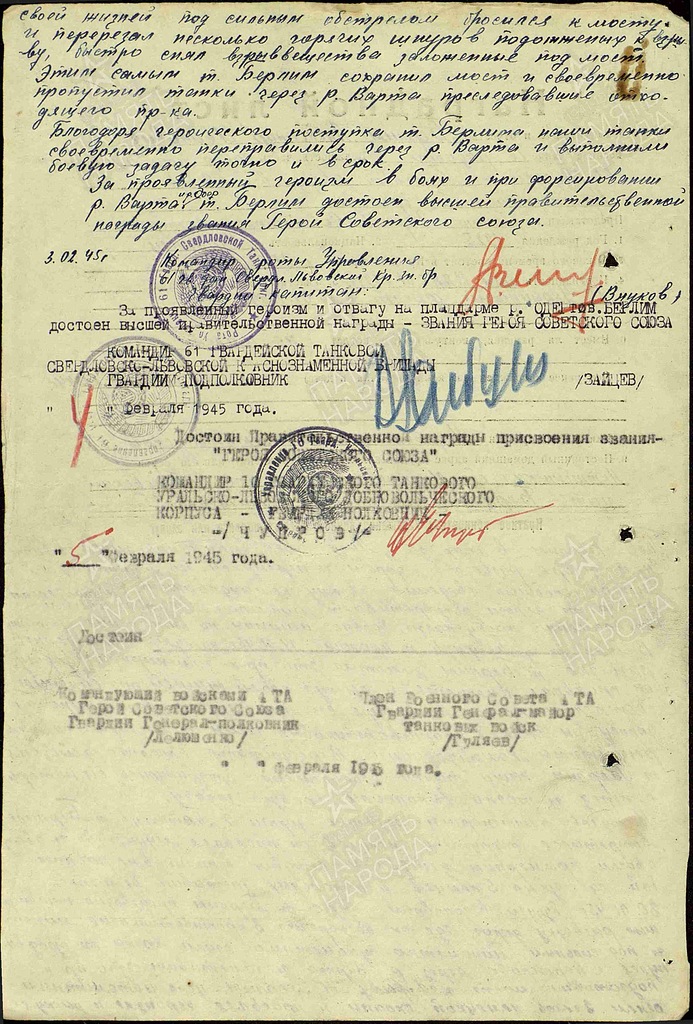 своей жизней под сильным обстрелом бросился к мосту
и перерезал несколько горячих шнуров подоженных к взры
ву, быстро снял взрыввещества заложенные под мост.
Этим самым т. Берлим сохранил мост и своевременно
пропустил танки через р. Варта преследовавшие отхо-
дящего пр-ка.
Благодоря героического поступка т. Берлима наши танки
своевременно переправились через р. Варта и выполнили
боевую задачу точно и в срок.
За проявленный героизм в боях и при форсировании
р. Варта и р. Одер т. Берлим достоен высшей правительственной
награды звания Герой Советского союза.
3.02.45г
Командир роты Управления
61 гв. Свердл. Львовской Кр. Зн. бр
гвардии капитан:
(Внуков)
За проявленный героизм и отвагу на плацдарме р. ОДЕР тов. БЕРЛИМ
достоен высшей правительственной награды - ЗВАНИЯ ГЕРОЯ СОВЕТСКОГО СОЮЗА
КОМАНДИР 61 ГВАРДЕЙСКОЙ ТАНКОВОЙ
СВЕРДЛОВСКО-ЛЬВОВСКОЙ К АСНОЗНАМЕННОЙ БРИГАДЫ
ГВАРДИИ ПОДПОЛКОВНИК
/ЗАЙЦЕВ/
"4" февраля 1945 года.
Достоин Правительственной награды присвоения звания-
"ГЕРОЯ СОВЕТСКОГО СОЮЗА"
КОМАНДИР 10 ГВАРДЕЙСКОГО ТАНКОВОГО
УРАЛЬСКО-ЛЬВОВСКОГО ДОБРОВОЛЬЧЕСКОГО
КОРПУСА - ГВАРДИИ ПОЛКОВНИК
-/ЧУПРОВ/-
"5" февраля 1945 года.
Достоин
Командующий войсками 4 ТА
Герой Советского Союза
Гвардии Генерал-полковник
/Лелюшенко/
Член Военного Совета 4 ТА
Гвардии Генерал-майор
танковых войск
/Гуляев/
" " февраля 1945 года.
ПАМЯТЬ НАРОДА